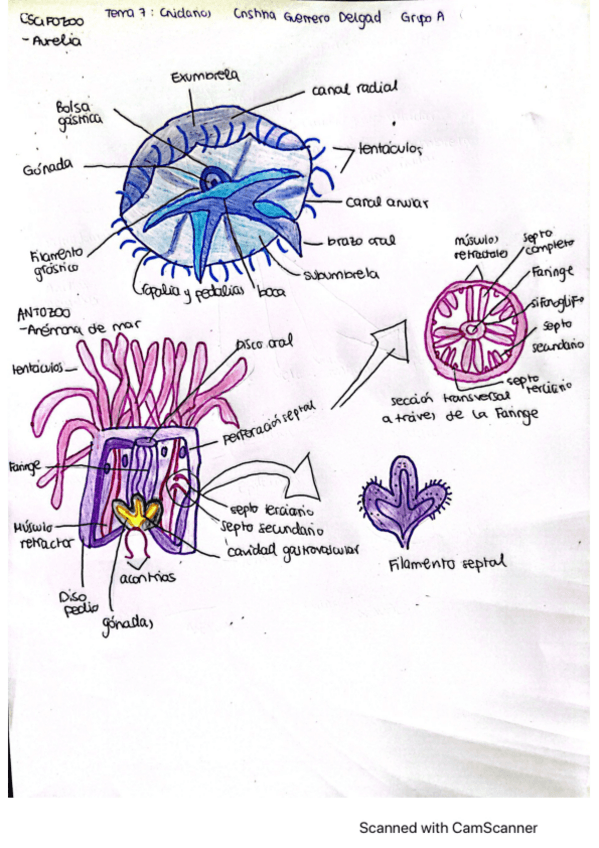 ESCIFOZOO
Tema 7: Cnidarios Cristina Guerrero Delgad Grupo A
- Aurelia
Exumbrela
canal radial
Bolsa
gástrica
tentáculos
Gónada
canal anular
brazo oral
Filamento
gástrico
subumbrela
ropalia y pedalias
boca
músculos
retractote
septo
completo
Faringe
sifonoglifo
septo
secundario
septo
terciario
sección transversal
a través de la Faringe
ANTOZOO
- Anémona de mar
Disco oral
tentáculos
Perforación septal
Faringe
septo terciario
septo secundario
cavidad gastrovascular
Músculo
retractor
acontias
Diso
pedio
gónadas
Filamento septal
Scanned with CamScanner